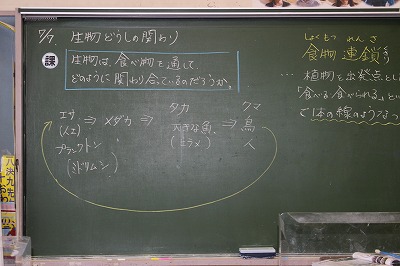 7/7 生物どうしの関わり
課
生物は、食べ物を通して、
どのように関わり合っているのだろうか。
エサ ⇒ メダカ ⇒
(人工)
プランクトン
(ミドリムシ)
タカ
大きな魚
(ヒラメ)
⇒
クマ
鳥
人
しょくもつ れんさ
食物連鎖
… 植物を出発点とし
「食べる食べられる」とい
1本の線のようなつ